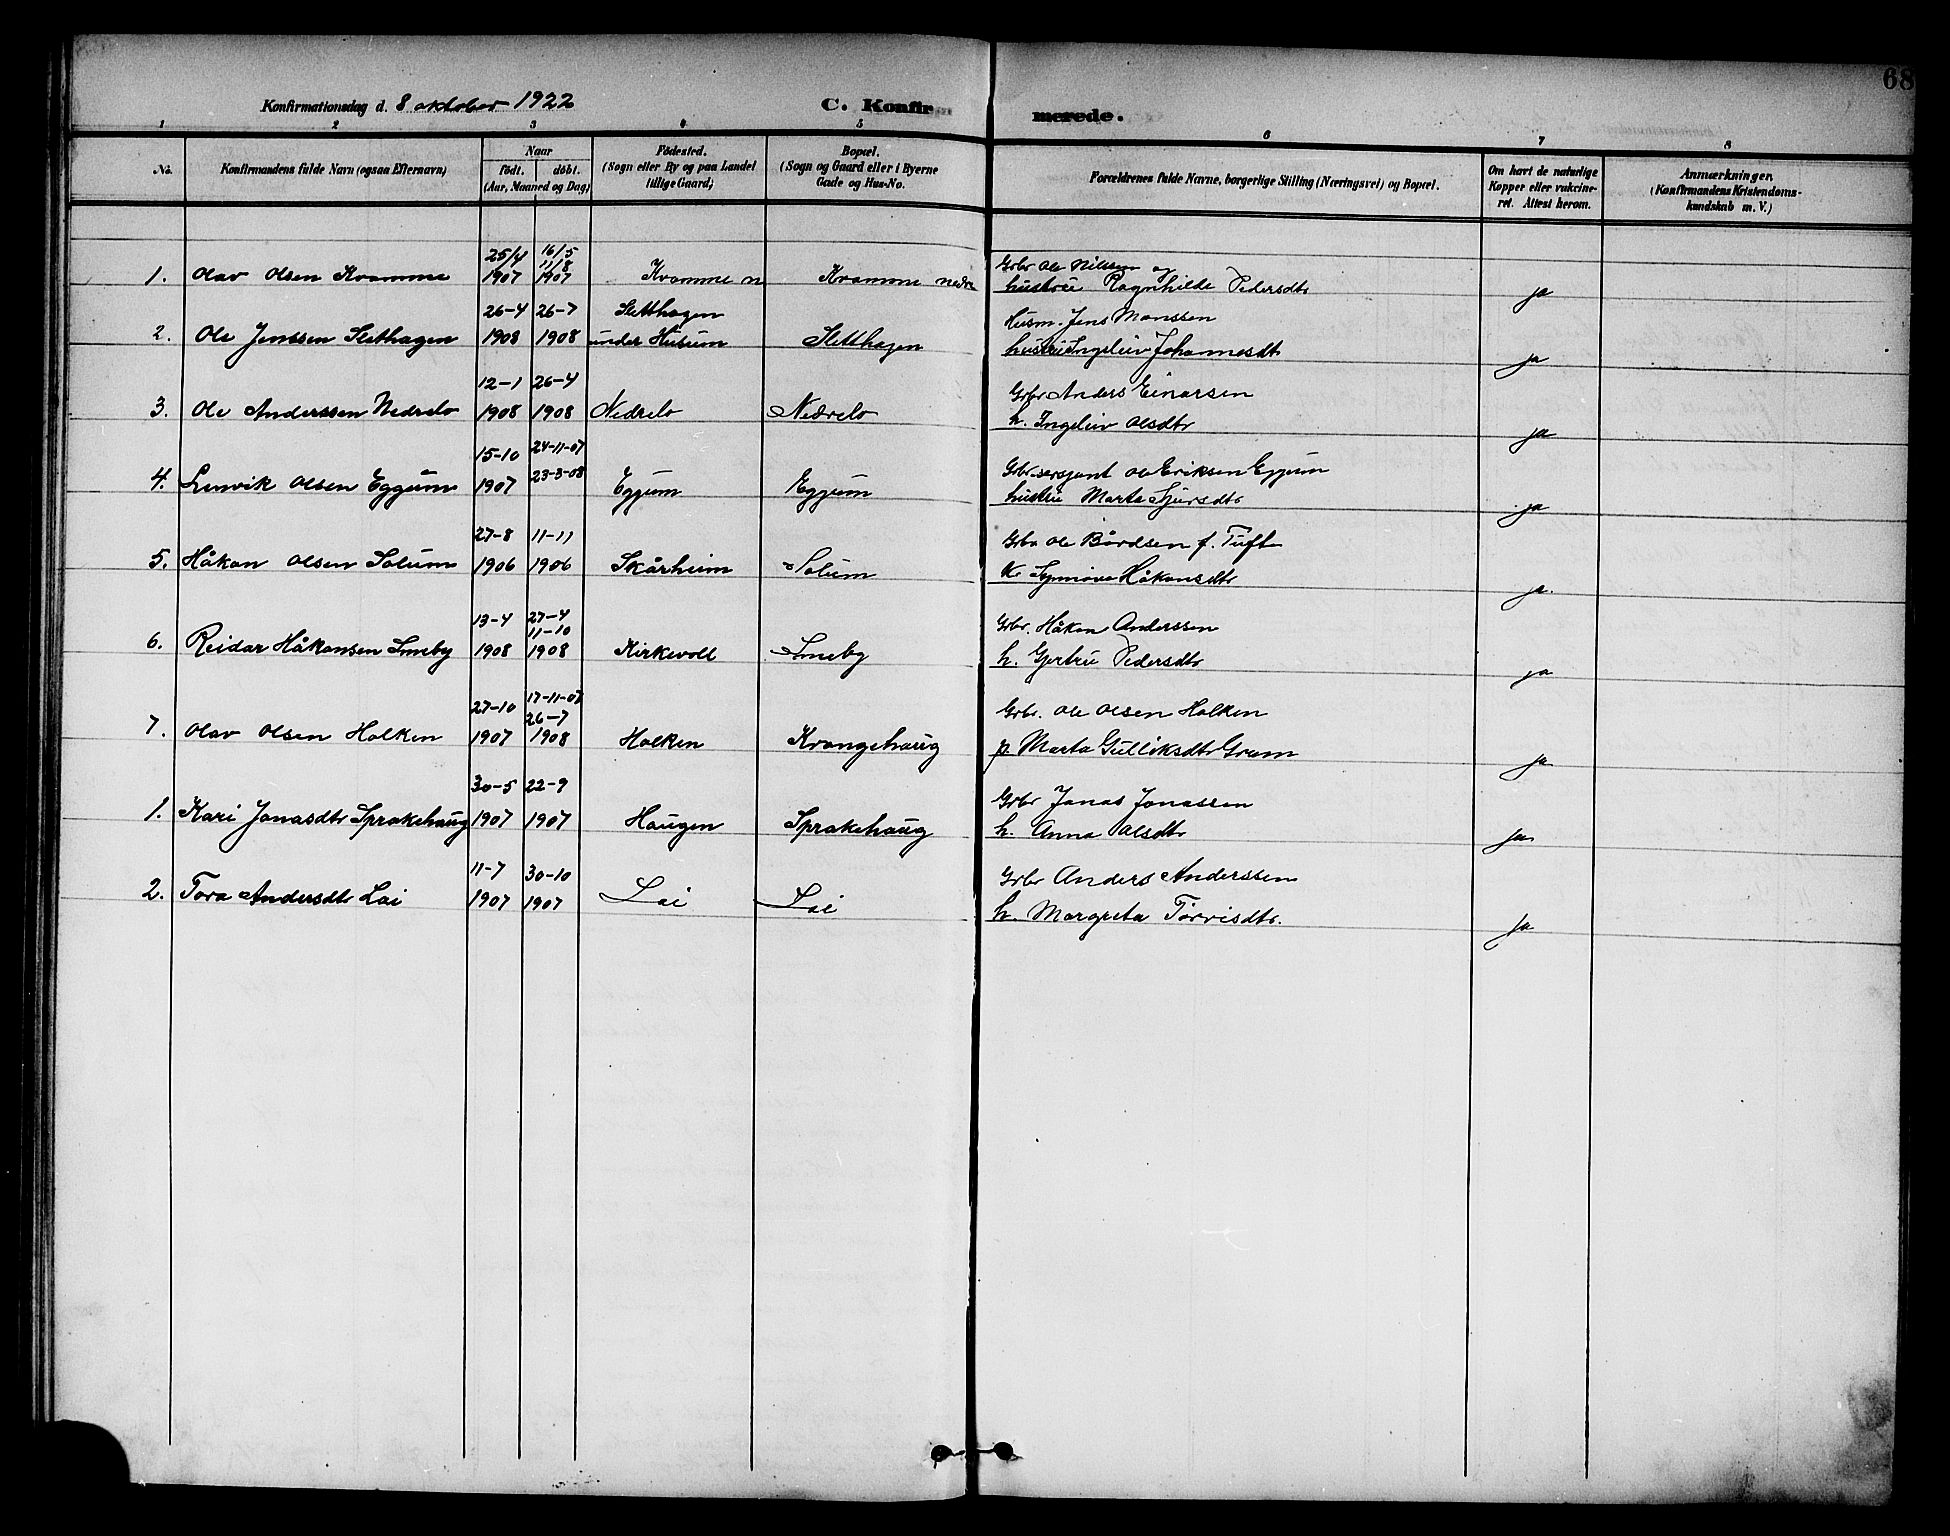 68
Konfirmationsdag d. 8 oktober 1922 C. Konfirmerede.
1 2 3 4 5 6 7 8
No. Konfirmandens fulde Navn (ogsaa Efternavn) Naar født. døbt. (Aar, Maaned og Dag) Fødested. (Sogn eller By og paa Landet tillige Gaard) Bopæl. (Sogn og Gaard eller i Byerne Gade og Hus-No. Forældrenes fulde Navne, borgerlige Stilling (Næringsvei) og Bopæl. Om havt de naturlige Kopper eller vakcineret. Attest herom. Anmærkninger. (Konfirmandens Kristendomskundskab m. V.)
25/4 16/5 Grbr Ole Nilssen og
11/8
1. Olav Olsen Kvamme 1907 1907 Kvamme n Kvamme nedre hustru Ragnhilde Pedersdtr ja
26-4 26-7 Sletthagen Husm. Jens Monssen
2. Ole Jenssen Slethagen 1908 1908 under Husum Sletthagen hustru Ingeleiv Johannesdt ja
12-1 26-4 Grbr Anders Einarsen
3. Ole Anderssen Nedrelo 1908 1908 Nedrelo Nedrelo h. Ingeleiv Olsdtr ja
15-10 24-11-07 Grbr. sersjant Ole Eriksen Eggum
4. Lenvik Olsen Eggum 1907 23-3-08 Eggum Eggum hustru Marta Sjursdtr ja
27-8 11-11 Grbr Ole Bårdsen f. Tuft
5. Håkon Olsen Solum 1906 1906 Skårheim Solum K. Synnøva Håkonsdtr ja.
13-4 27-4 Grbr. Håkon Anderssen
11-10
6. Reidar Håkonsen Smeby 1908 1908 Kirkevoll Smeby h. Gjertru Pedersdtr ja
27-10 17-11-07 Grbr. Ole Olsen Holken
26-7
7. Olav Olsen Holken 1907 1908 Holken Krangehaug p. Marta Gulliksdtr Gram ja
30-5 22-9 Grbr Jonas Jonassen
1. Kari Jonasdtr Sprakehaug 1907 1907 Haugen Sprakehaug h. Anna Olsdtr ja
11-7 30-10 Grbr Anders Anderssen
2. Tora Andersdtr Loi 1907 1907 Loi Loi h. Margreta Torvisdtr. ja